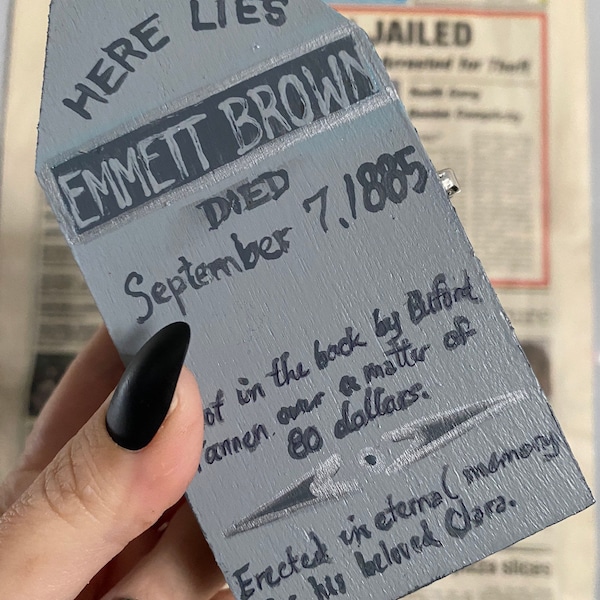 HERE LIES
EMMETT BROWN
DIED
September 7, 1885
ot in the back by Buford
annen over a matter of
80 dollars.
Erected in eternal memory
his beloved Clara.
JAILED